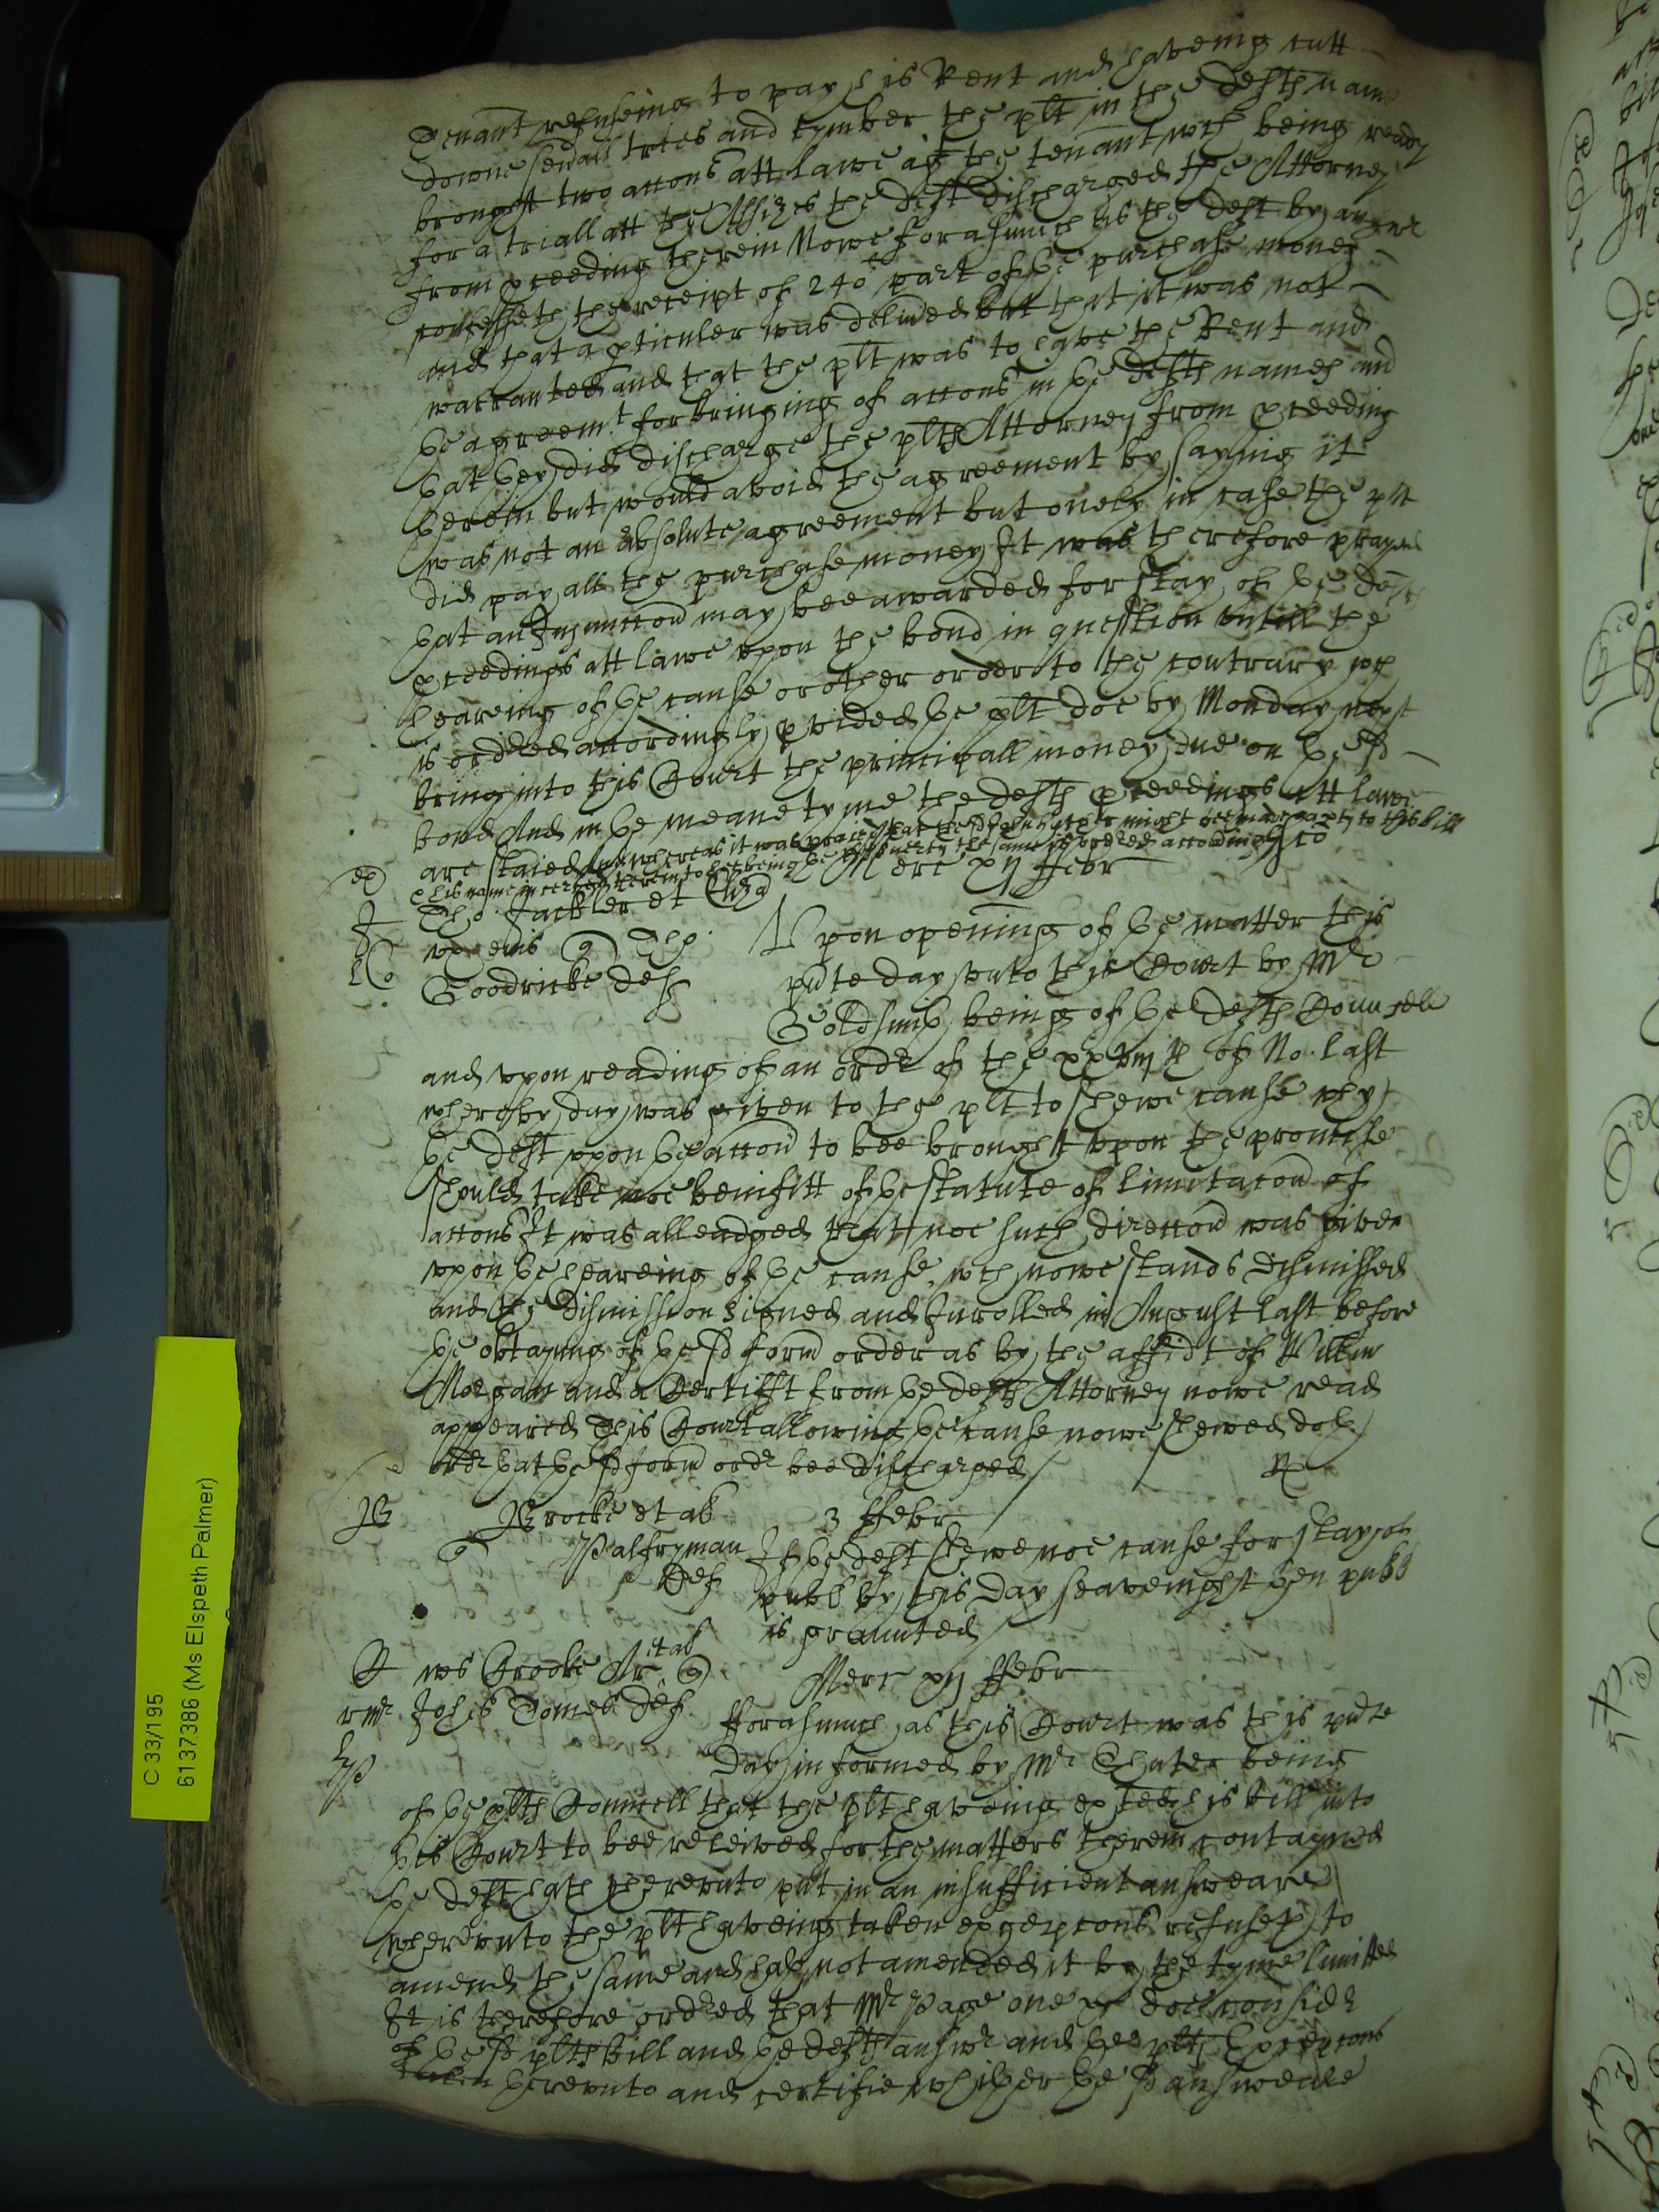 Tenant refuseing to pay his Rent and haveing cutt
downe sev'all trees and tymber the plt in the defts name
brought two accons att lawe ag't the tenant wch being ready
for a triall att the Assizes the deft discharged the Attorney
from p'ceeding therein Nowe forasmuch as the deft by answe
confesseth the receipt of 240 part of ye purchase money
and that a p'ticuler was deliv'ed but that it was not
warranted and that the plt was to have the Rent and
ye agreemt for bringing of accons in ye defts names and
yat yey did discharge the plts Attorney from p'ceeding
yerein but would avoid the agreement by saying it
was not an absolute agreement but onely in case the plt
did pay all the purchase money It was therefore prayed
yat an Iniunccon may bee awarded for stay of ye defts
p'ceedings att lawe upon the bond in question untill the
heareing of ye cause or other order to the contrary wch
is ordered accordingly p'vided ye plt doe by Monday next
bring into this Court the principall money due on ye sd
bond And in ye meane tyme the defts p'ceedings att lawe
are staied And whereas it was praied that the sd John might bee made a party to this bill
his name therein being the same is ordered accordingly
Merc xij ffebr
Tho: Fackler et
Goodricke def
Upon opening of ye matter this
p'nte day unto this Court by Mr
Goldsmith being of ye defts Councell
and upon reading of an ordr of the xxviijth of No: last
whereby day was given to the plt to shewe cause why
ye deft upon ye accon to bee brought upon the promise
should take noe benifitt of ye statute of limitacon of
accons It was alleadged that noe such direccon was given
upon ye heareing of ye cause wch nowe stands dismissed
and the dismission signed and Inrolled in August last before
ye obtayning of ye sd form' order as by the affidt of Willm
Morgan and a Certifft from ye defts Attorney nowe read
appeared This Court allowing ye cause nowe shewed doth
ordr yat ye sd form' ordr bee discharged
Brocke et al 3 ffebr
Palfryman
Def
If ye deft shewe noe cause for stay of
publ by this day seavenight then publ
is graunted
ws Crooke Ar et al
Johis Tomes def
Merc xij ffebr
fforasmuch as this Court was this p'nte
day informed by Mr Chute being
of ye plts Councell that the plt haveing exhted his bill into
this Court to bee releived for the matters therein contayned
ye deft hath thereunto put in an insufficient answeare
whereunto the plt haveing taken excepcons refuseth to
amend the same and hath not amended it by the tyme limitted
It is therefore ordred that Mr Page one &c doe considr
of ye sd plts bill and ye defts answr and ye plts Excepcons
yereunto and certifie whither ye sd answeare
C 33/195
6137386 (Ms Elspeth Palmer)